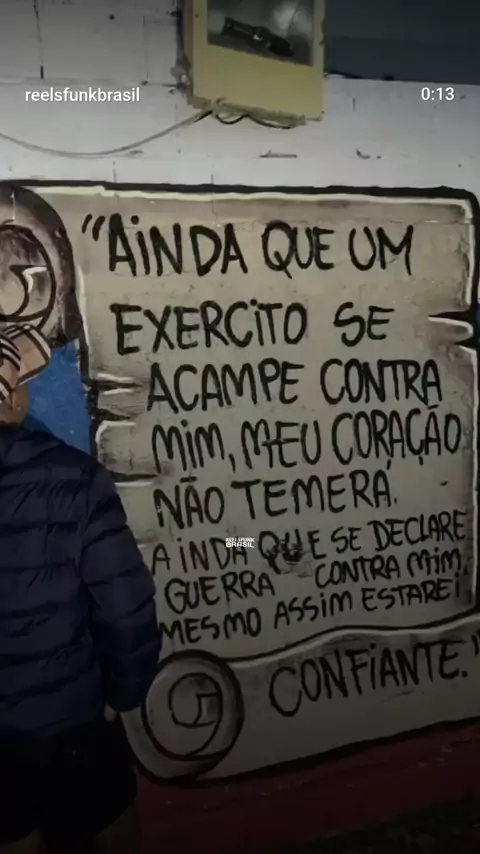 reelsfunkbrasil
0:13
"AiNDA QUE UM
EXERCiTO SE
ACAMPE CONTRA
MiM, MEU CORAÇÃO
NÃO TEMERÁ.
AiNDA QUE SE DECLARE
GUERRA CONTRA MiM,
MESMO ASSiM ESTAREi
CONFiANTE."
REELSFUNK
BRASIL